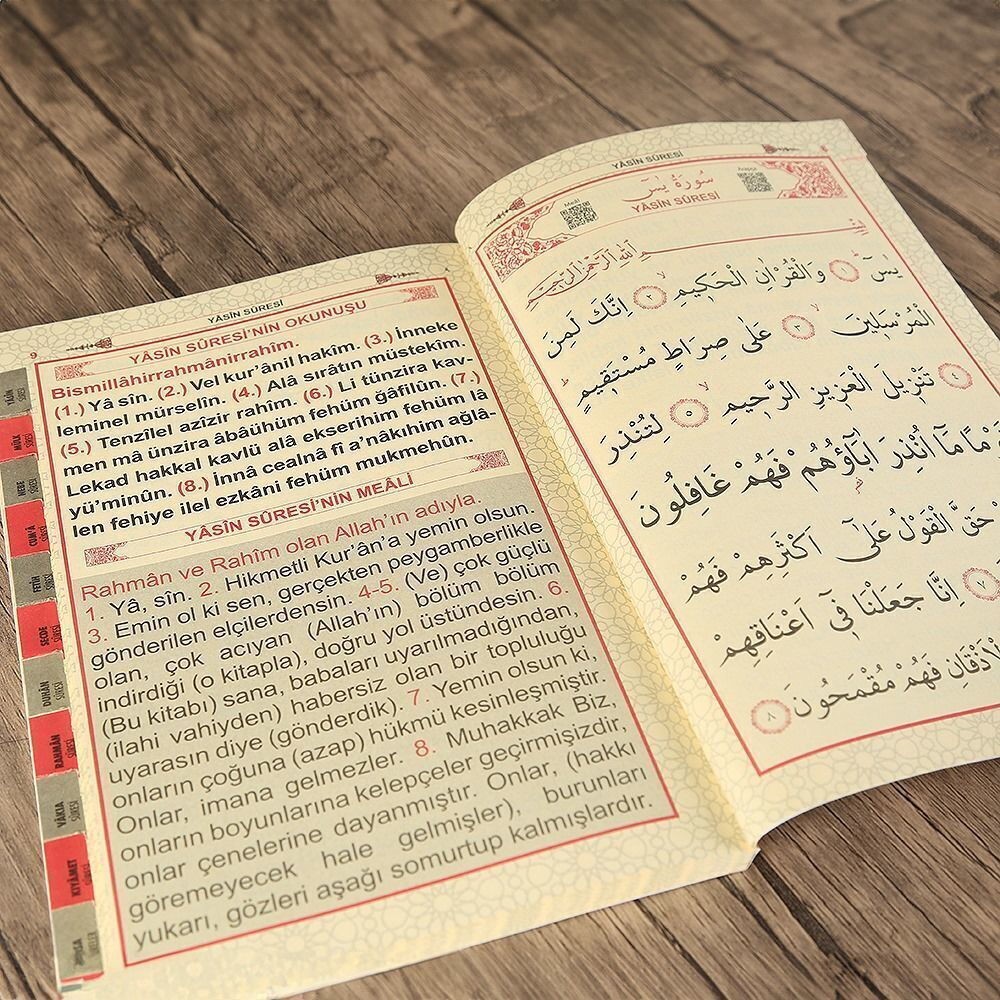 YÂSÎN SÛRESİ
9
YÂSÎN SÛRESİ'NİN OKUNUŞU
Bismillâhirrahmânirrahîm.
(1.) Yâ sîn. (2.) Vel kur'ânil hakîm. (3.) İnneke
leminel mürselîn. (4.) Alâ sırâtın müstekîm.
(5.) Tenzîlel azîzir rahîm. (6.) Li tünzira kav-
men mâ ünzira âbâühüm fehüm ğafilûn. (7.)
Lekad hakkal kavlü alâ ekserihim fehüm lâ
yü'minûn. (8.) İnnâ cealnâ fî a'nâkıhim ağlâ-
len fehiye ilel ezkâni fehüm mukmehûn.
YÂSÎN SÛRESİ'NİN MEÂLİ
Rahmân ve Rahîm olan Allah'ın adıyla.
1. Yâ, sîn. 2. Hikmetli Kur'ân'a yemin olsun.
3. Emin ol ki sen, gerçekten peygamberlikle
gönderilen elçilerdensin. 4-5. (Ve) çok güçlü
olan, çok acıyan (Allah'ın) bölüm bölüm
indirdiği (o kitapla), doğru yol üstündesin. 6.
(Bu kitabı) sana, babaları uyarılmadığından,
(ilahi vahiyden) habersiz olan bir topluluğu
uyarasın diye (gönderdik). 7. Yemin olsun ki,
onların çoğuna (azap) hükmü kesinleşmiştir.
Onlar, imana gelmezler. 8. Muhakkak Biz,
onların boyunlarına kelepçeler geçirmişizdir,
onlar çenelerine dayanmıştır. Onlar, (hakkı
göremeyecek hale gelmişler), burunları
yukarı, gözleri aşağı somurtup kalmışlardır.
YÂSÎN SÛRESİ
MÜLK SÛRESİ
NEBE SÛRESİ
CUM'A SÛRESİ
FETİH SÛRESİ
SECDE SÛRESİ
DUHÂN SÛRESİ
RAHMÂN SÛRESİ
VÂKIA SÛRESİ
KIYÂMET SÛRESİ
KISA SÛRELER
YÂSÎN SÛRESİ
سُورَةُ يٰسٓ
YÂSÎN SÛRESİ
Meâli
Arapça
يٰسٓ ﴿١﴾ وَالْقُرْاٰنِ الْحَكٖيمِ ﴿٢﴾ اِنَّكَ لَمِنَ
الْمُرْسَلٖينَ ﴿٣﴾ عَلٰى صِرَاطٍ مُسْتَقٖيمٍ
تَنْزٖيلَ الْعَزٖيزِ الرَّحٖيمِ ﴿٥﴾ لِتُنْذِرَ
مَا اُنْذِرَ اٰبَٓاؤُ۬هُمْ فَهُمْ غَافِلُونَ
حَقَّ الْقَوْلُ عَلٰٓى اَكْثَرِهِمْ فَهُمْ
﴿٧﴾ اِنَّا جَعَلْنَا فٖٓى اَعْنَاقِهِمْ
الْاَذْقَانِ فَهُمْ مُقْمَحُونَ ﴿٨﴾